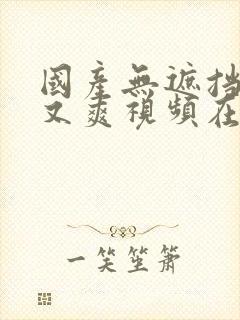 國產無遮挡
又爽視頻在
一笑笙簫